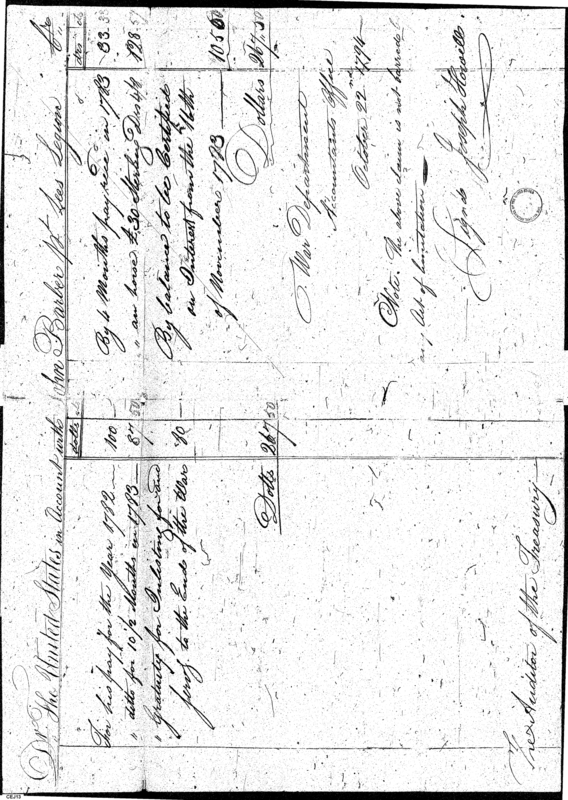 Dr. The United States in Account with John Barber pt. Lees Legion Cr.
dolls
To his pay for the Year 1782 — 100
" ditto for 10 1/2 Months in 1783 — 87 50
" Gratuity for Inlisting for and
serv'g to the Ende of the War 80
Dolls 267.50
drs cts
By 4 Months pay rec'd in 1783 33.33
" an horse £30 Sterling Drs 4/8 128.57
By balance to be Certified
on Interest from the 16th
of November 1783 — 105.60
Dollars 267.50
War Department
Accountants Office
October 22nd 1794 —
Note. The above claim is not barred by
any Act of limitation —
Signed Joseph Howell
The Auditor of the Treasury
CEJ13